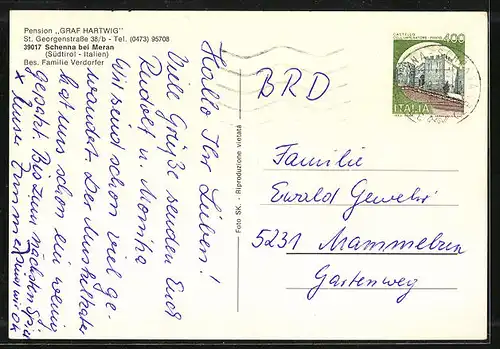 Pension „GRAF HARTWIG"
St. Georgenstraße 38/b - Tel. (0473) 95708
39017 Schenna bei Meran
(Südtirol - Italien)
Bes. Familie Verdorfer
Hallo Ihr Lieben!
Viele Grüße senden Euch
Rudolf u. Monika
Wir sind schon viel ge-
wandert. Der Muskelkater
hat uns schon ein wenig
geplagt. Bis zum nächsten
x unser Zimmer
Foto SK. - Riproduzione vietata
400
ITALIA
BRD
Familie
Ewald Gewehr
5231 Mammelzen
Gartenweg